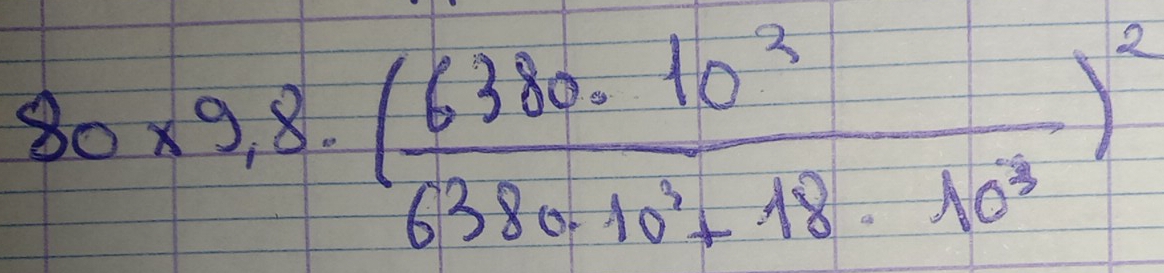 80 x 9,8 · (6380 · 10³ / 6380 · 10³ + 18 · 10³)²